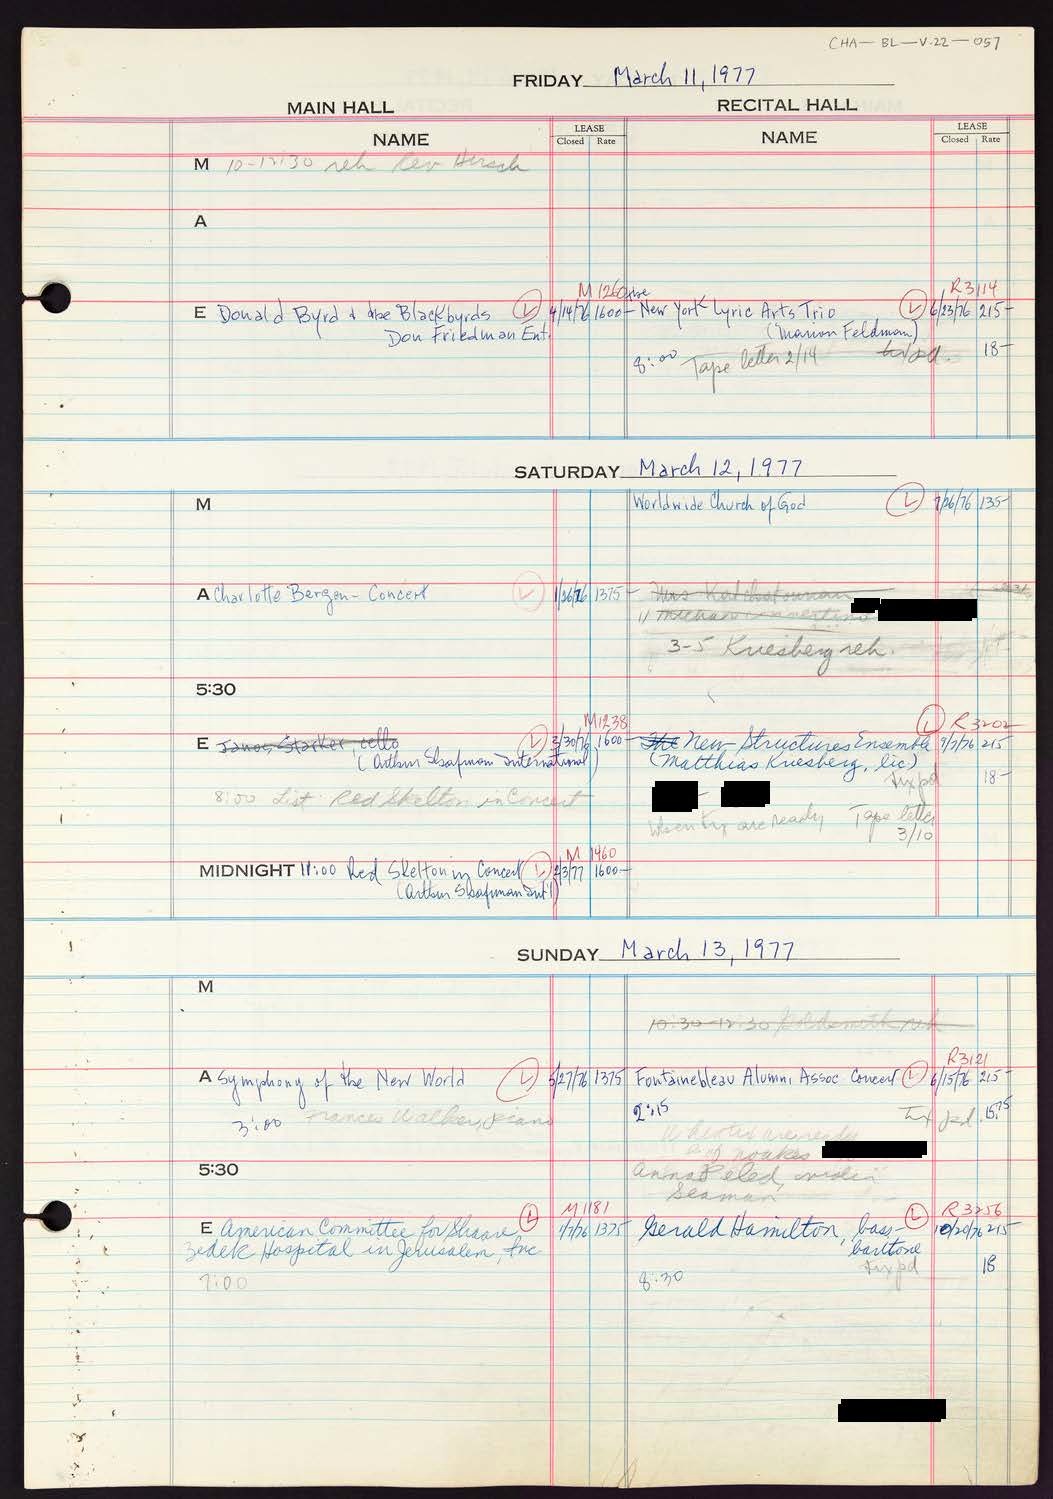 CHA-BL-V.22-057
FRIDAY March 11, 1977
MAIN HALL RECITAL HALL
NAME LEASE Closed Rate NAME LEASE Closed Rate
M 10-12:30 reh Rev Hirsch
A
M 1260 R3114
E Donald Byrd & the Blackbyrds L 4/14/76 1600- New York Lyric Arts Trio L 6/23/76 215-
Don Friedman Ent. (Marion Feldman)
8:00 Tape letter 2/14 18-
SATURDAY March 12, 1977
M Worldwide Church of God L 7/26/76 135-
A Charlotte Bergen - Concert L 1/26/76 1375-
3-5 Kriesberg reh.
5:30
M1238 L R3202
E Janos Starker, cello L 3/30/76 1600- The New Structures Ensemble 9/7/76 215
(Arthur Shafman International) (Matthias Kriesberg, lic)
tix pd 18-
8:00 List: Red Skelton in Concert
When tix are ready Tape letter
3/10
M 1460
MIDNIGHT 11:00 Red Skelton in Concert L 2/3/77 1600-
(Arthur Shafman Int'l)
SUNDAY March 13, 1977
M
10:30-12:30 Goldsmith reh
R3121
A Symphony of the New World L 5/27/76 1375 Fontainebleau Alumni Assoc Concert L 6/15/76 215-
3:00 Frances Walker, piano 2:15 tix pd 15.75
When tix are ready
5:30
Anna Peled, violin
Seaman
M1181 R3256
E American Committee for Shaare L 1/7/76 1375 Gerald Hamilton, bass- L 10/20/76 215
Zedek Hospital in Jerusalem, Inc baritone
tix pd 18
7:00 8:30